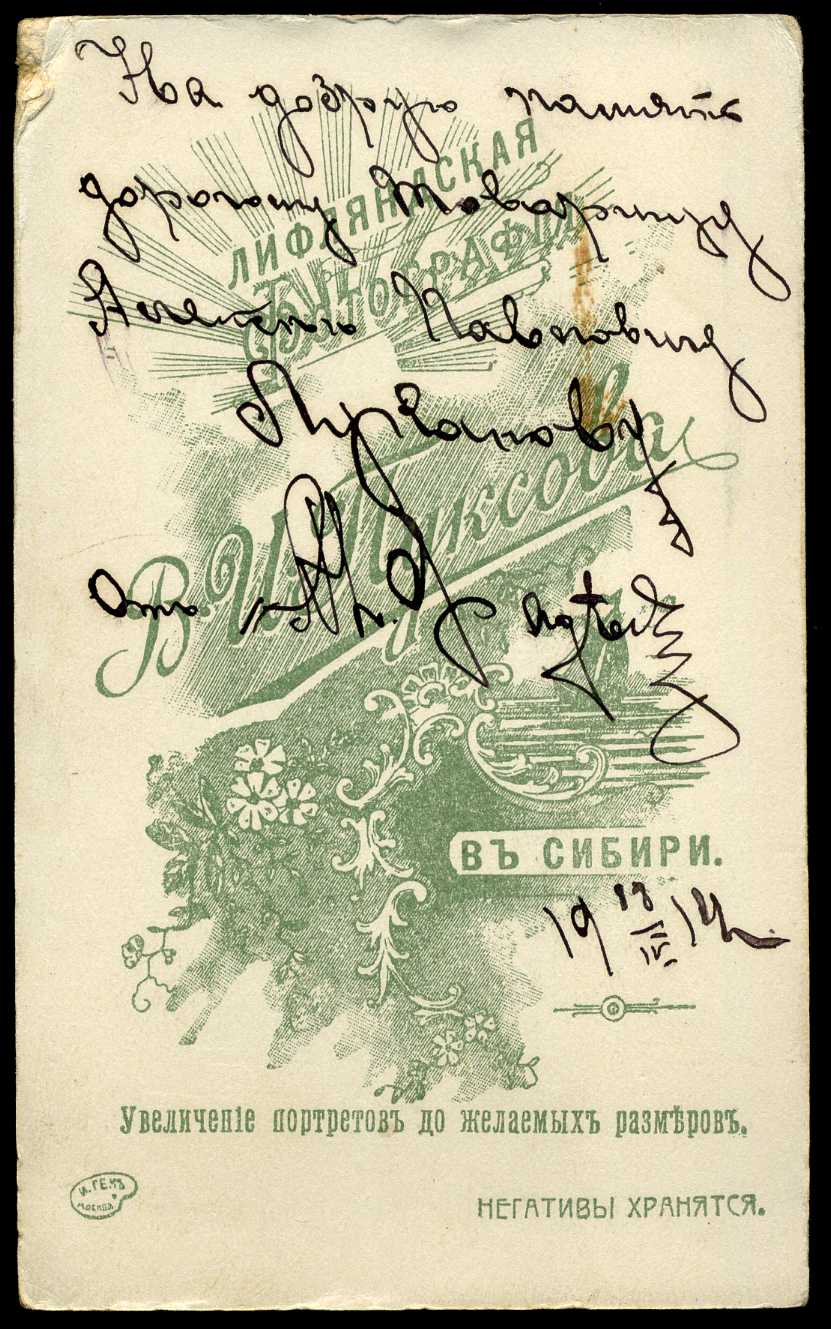 На добрую память
дорогому Товарищу
Алексею Павловичу
Лузанову
отъ
ЛИФЛЯНДСКАЯ
ФОТОГРАФІЯ
В. И. Пуксова
ВЪ СИБИРИ.
19 18/IV 14 г.
Увеличеніе портретовъ до желаемыхъ размѣровъ.
И. ГЕКЪ
МОСКВА
НЕГАТИВЫ ХРАНЯТСЯ.